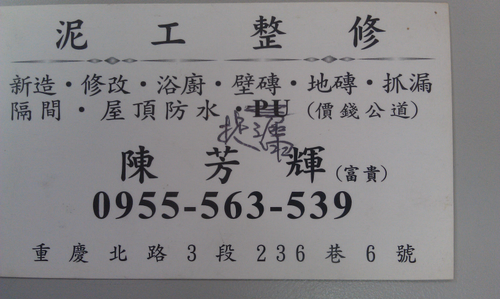 泥工整修
新造·修改·浴廚·壁磚·地磚·抓漏
隔間·屋頂防水·PU(價錢公道)
陳芳輝(富貴)
0955-563-539
重慶北路3段236巷6號